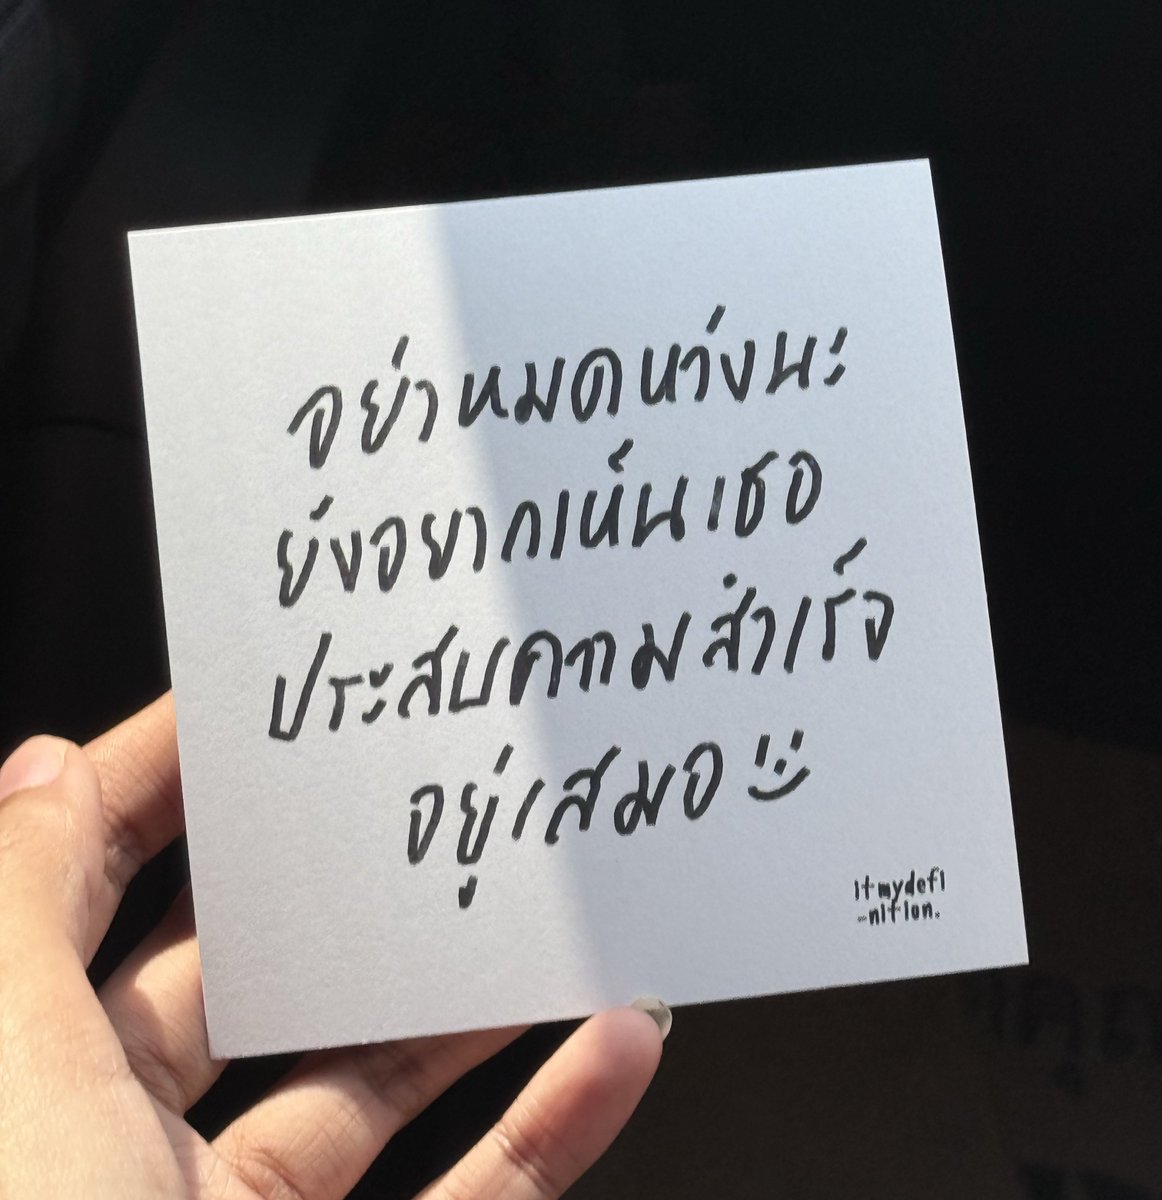 อย่าหมดหวังนะ
ยังอยากเห็นเธอ
ประสบความสำเร็จ
อยู่เสมอ
itmydefi
-nition.